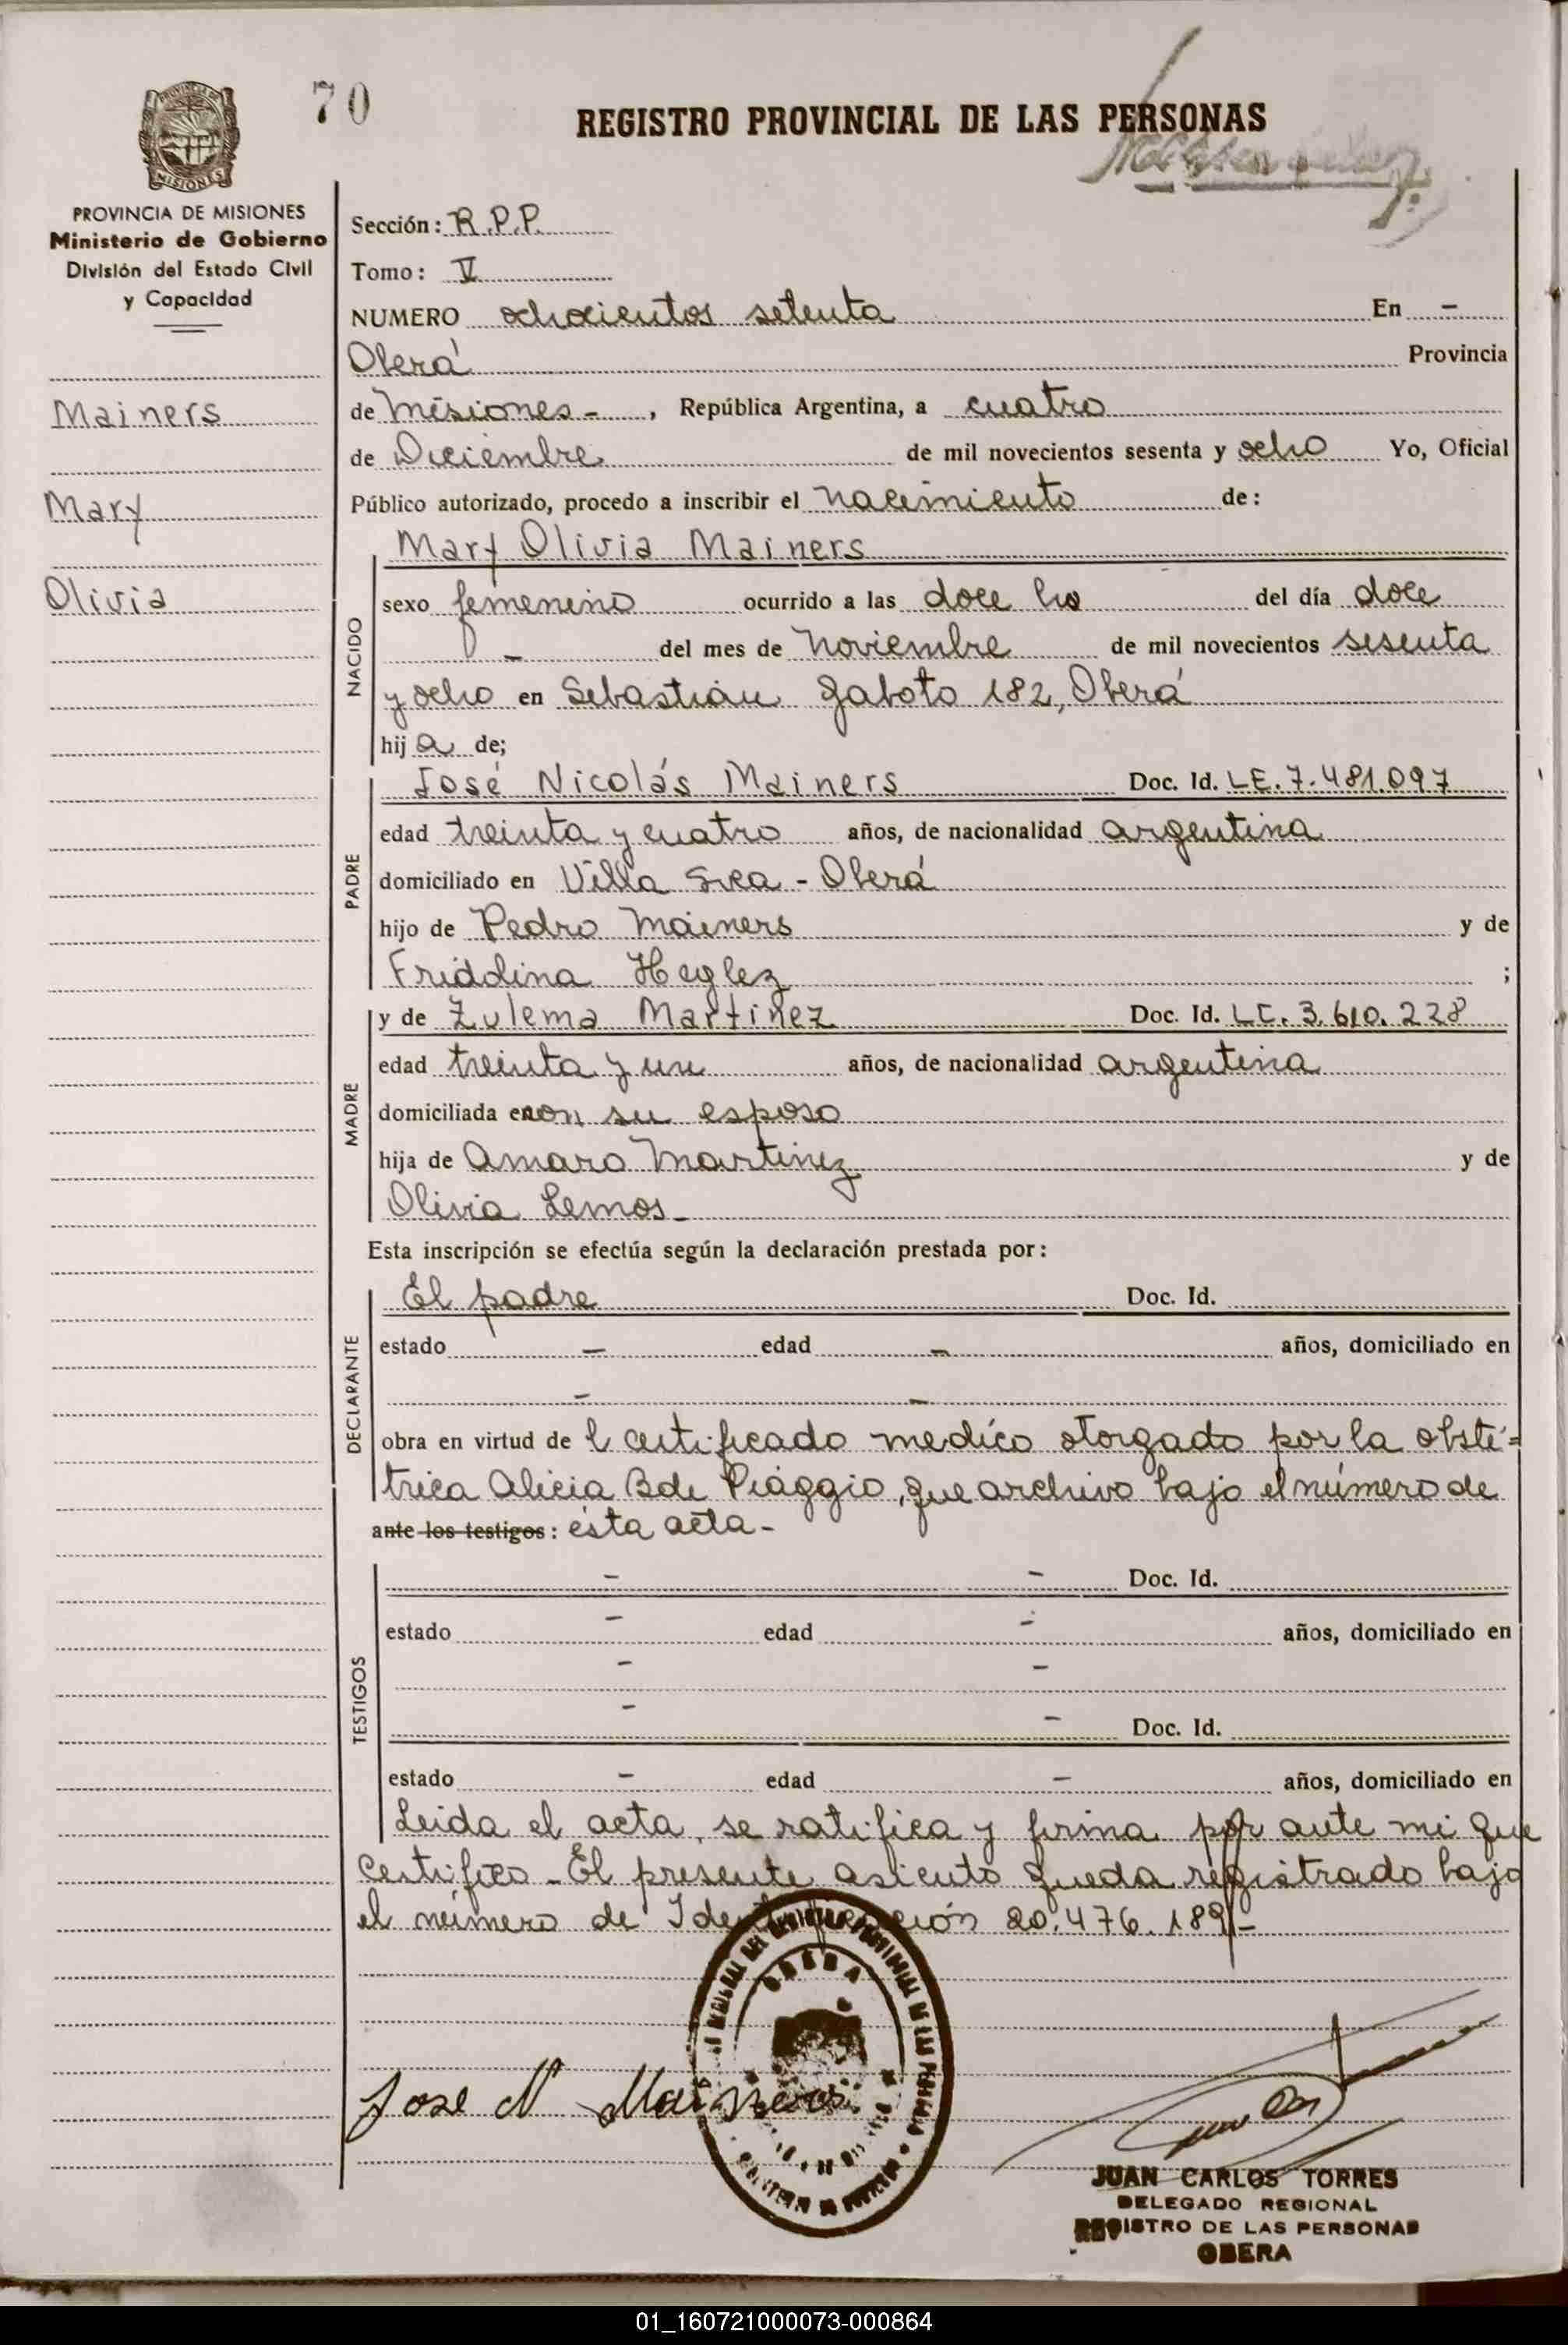 70
REGISTRO PROVINCIAL DE LAS PERSONAS
MISIONES
PROVINCIA DE MISIONES
Ministerio de Gobierno
División del Estado Civil
y Capacidad
Mainers
Mary
Olivia
Sección: R.P.P.
Tomo: V
NUMERO ochocientos setenta En -
Oberá Provincia
de Misiones - , República Argentina, a cuatro
de Diciembre de mil novecientos sesenta y ocho Yo, Oficial
Público autorizado, procedo a inscribir el nacimiento de:
NACIDO
Mary Olivia Mainers
sexo femenino ocurrido a las doce hs del día doce
- del mes de Noviembre de mil novecientos sesenta
y ocho en Sebastián Gaboto 182, Oberá
hija de;
PADRE
José Nicolás Mainers Doc. Id. LE. 7.481.097
edad treinta y cuatro años, de nacionalidad argentina
domiciliado en Villa Svea - Oberá
hijo de Pedro Mainers y de
Friddina Heglez ;
MADRE
y de Zulema Martinez Doc. Id. LC. 3.610.228
edad treinta y un años, de nacionalidad argentina
domiciliada con su esposo
hija de Amaro Martinez y de
Olivia Lemos -
Esta inscripción se efectúa según la declaración prestada por:
DECLARANTE
El padre Doc. Id.
estado - edad - años, domiciliado en
- -
obra en virtud de l certificado medico otorgado por la obsté=
trica Alicia B de Piaggio, que archivo bajo el número de
ante los testigos: ésta acta -
TESTIGOS
- - Doc. Id.
estado - edad - años, domiciliado en
- -
- - Doc. Id.
estado - edad - años, domiciliado en
Leida el acta, se ratifica y firma por ante mi que
certifico - El presente asiento queda registrado bajo
el número de Identificación 20.476.189 -
OBERA
Jose N Mainers
JUAN CARLOS TORRES
DELEGADO REGIONAL
REGISTRO DE LAS PERSONAS
OBERA
01_160721000073-000864